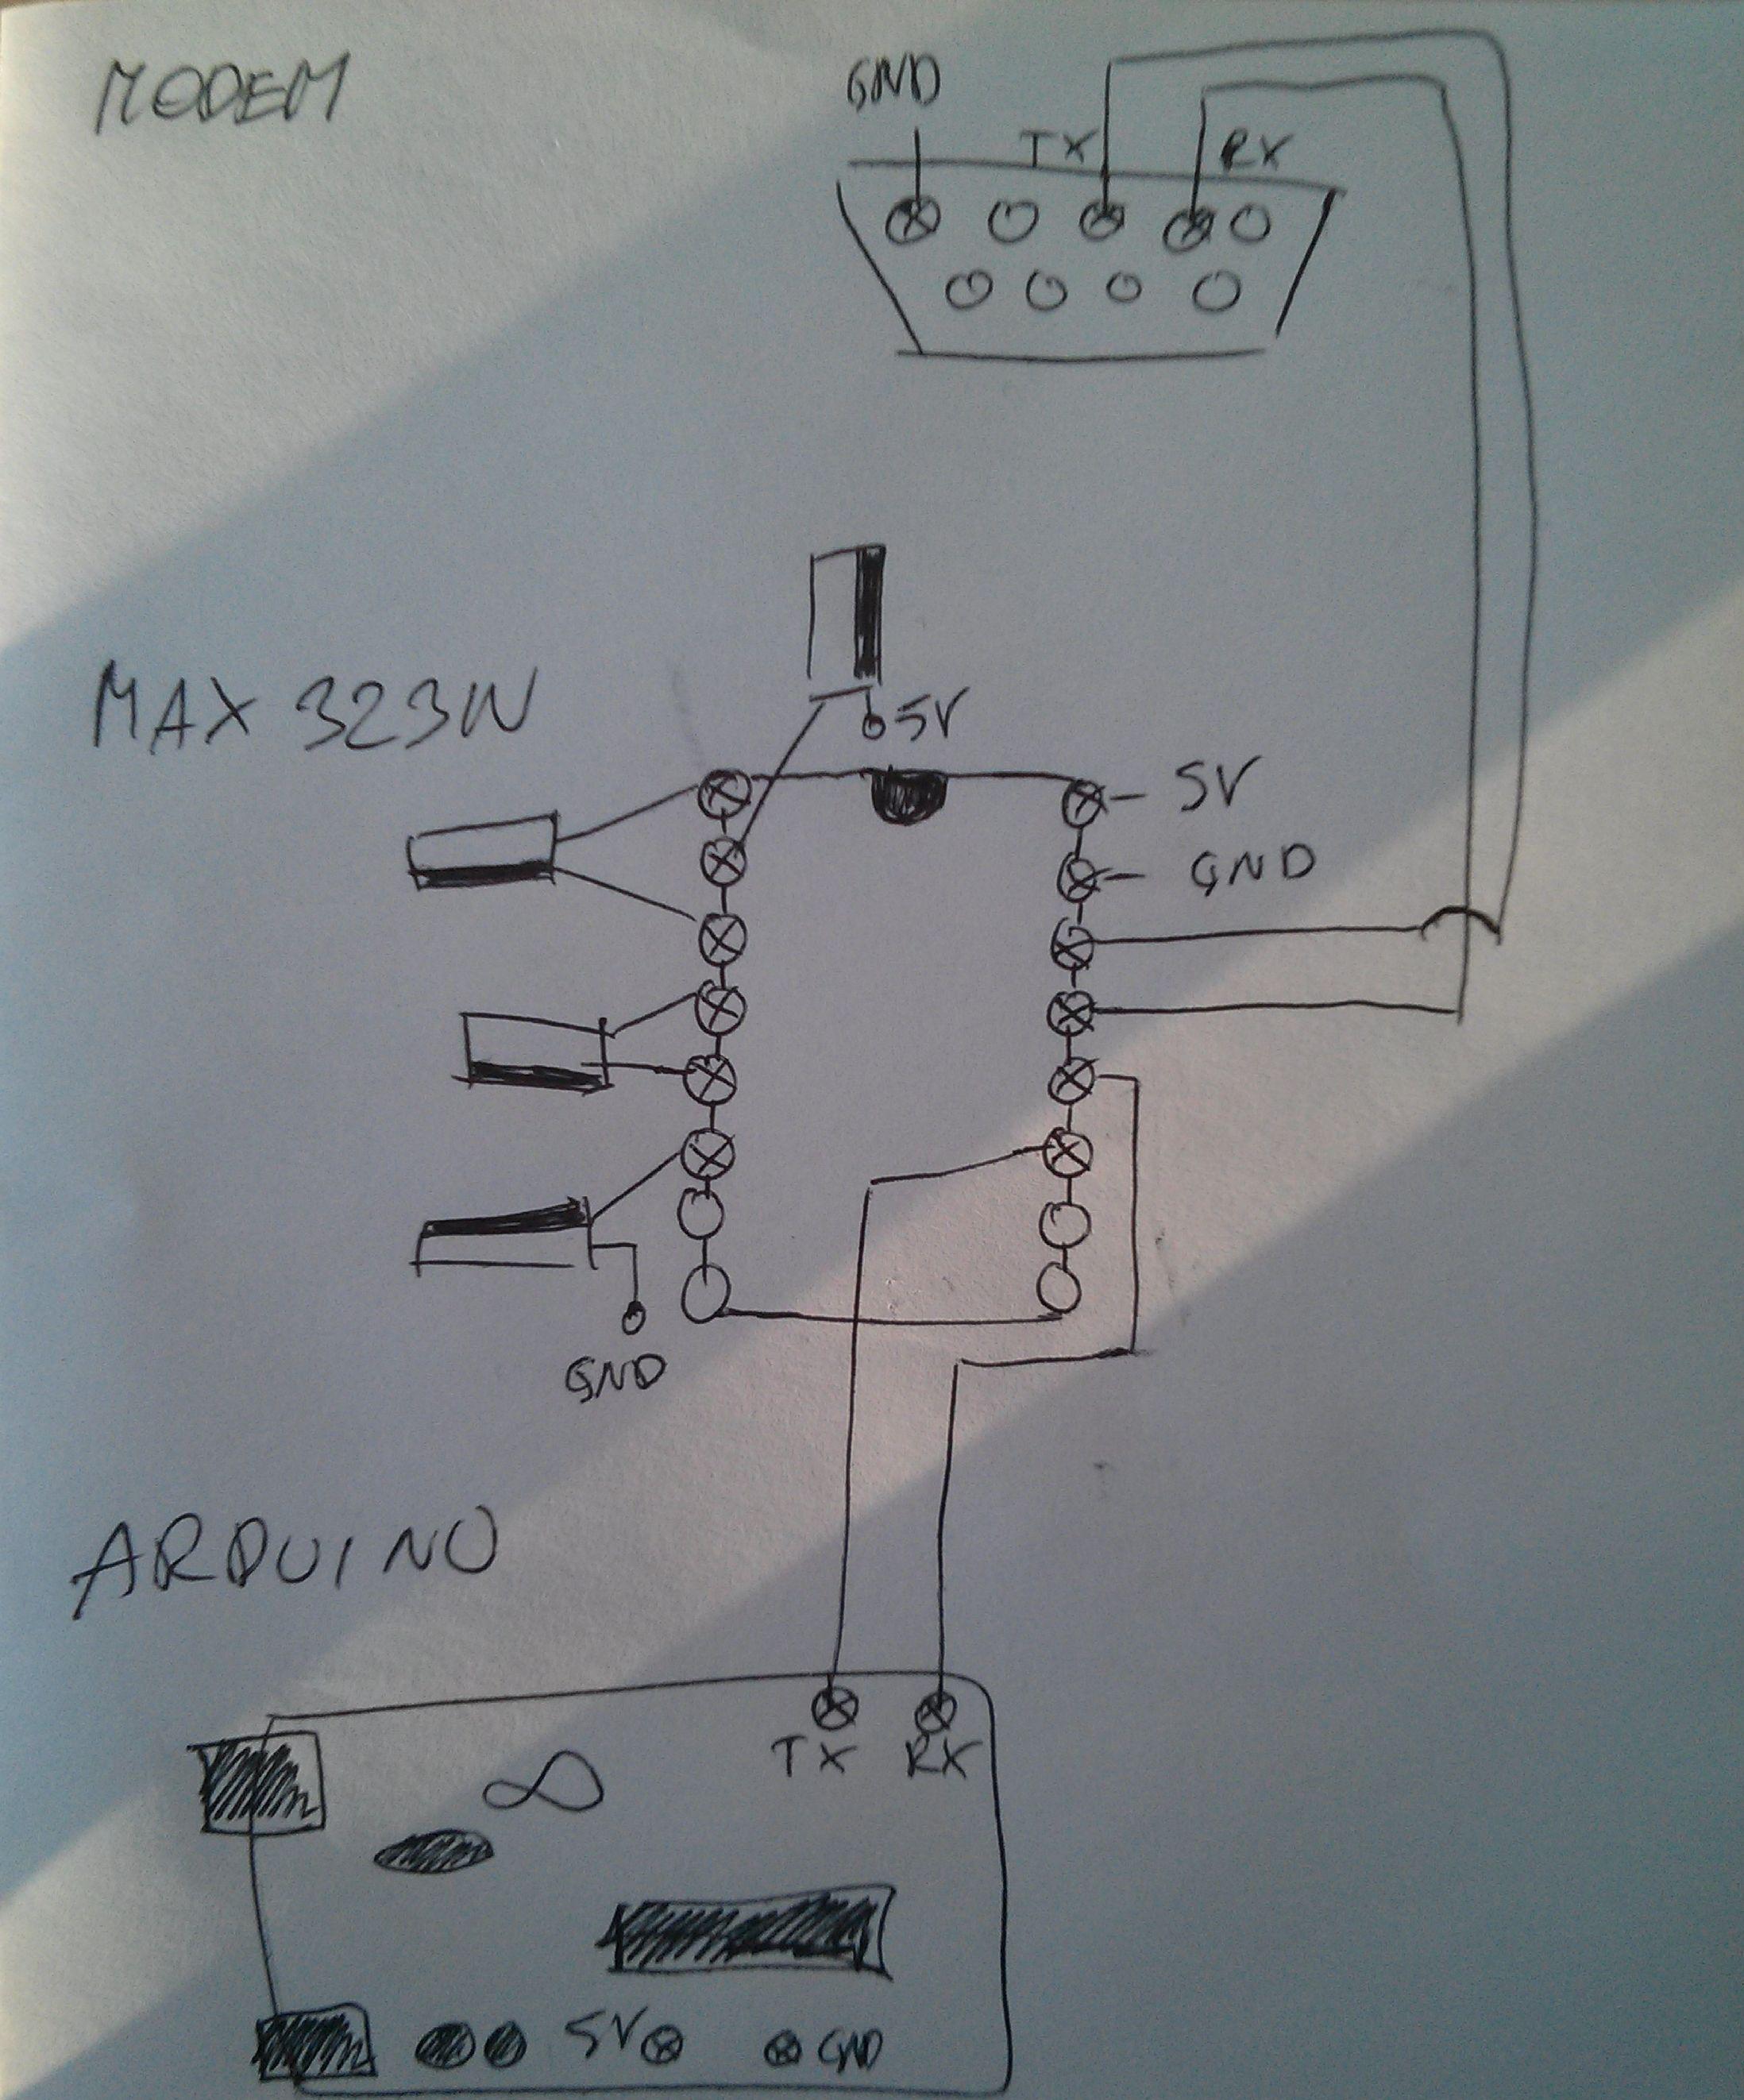 MODEM
GND
TX RX
MAX 323N
5V
5V
GND
GND
ARDUINO
TX RX
5V GND